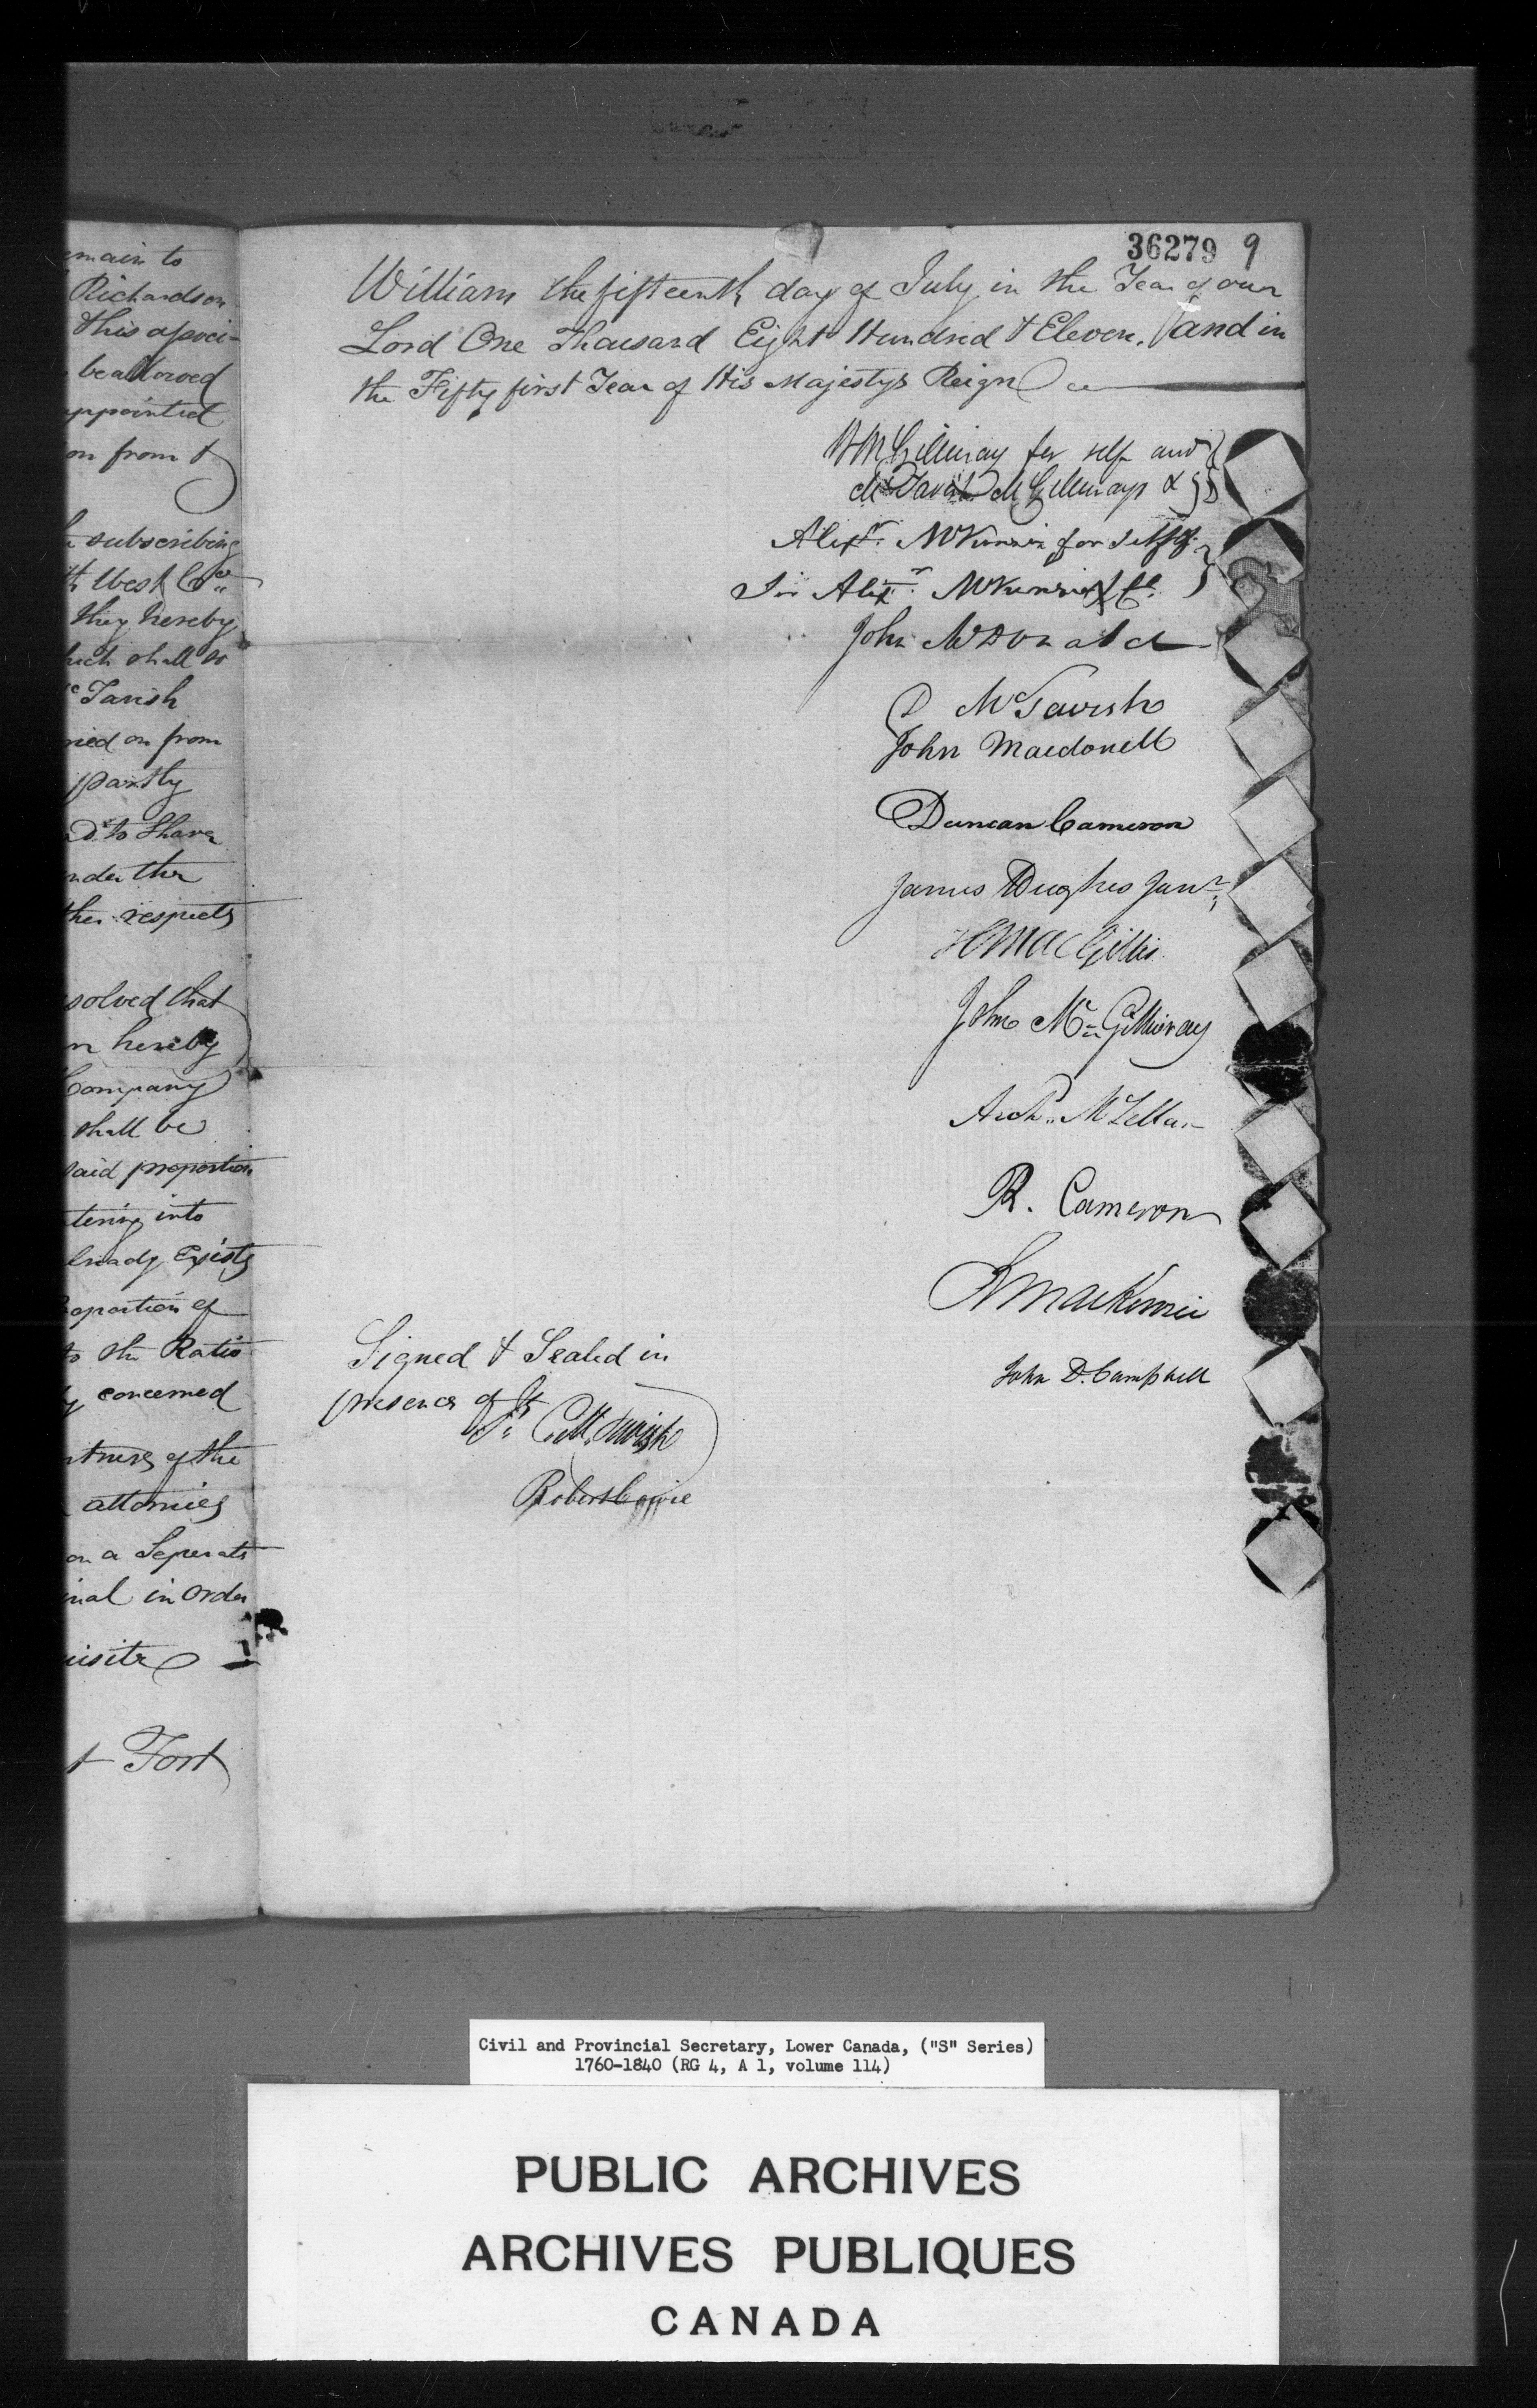 emain to
Richardson
this associ-
be allowed
appointed
on from &
subscribing
West Co.
they hereby
hich shall so
Tavish
ried on from
partly
to Share
nder the
ther respects
solved that
n hereby
Company
shall be
said proportion
tering into
lready Exists
roportion of
to the Ratio
concerned
rtners of the
attornies
on a Seperate
inal in order
uisite
t Fort
36279 9
William the fifteenth day of July in the Year of our
Lord One Thousand Eight Hundred & Eleven, and in
the Fifty first Year of His Majestys Reign
Wm McGillivray for self and
McTavish McGillivrays &
Alexr. McKenzie for self &
Sir Alexr. McKenzie & Co.
John McDonald
D McTavish
John Macdonell
Duncan Cameron
James Hughes Junr.
H MacGillis
John McGillivray
Archd. McLellan
R. Cameron
R Mackenzie
John D. Campbell
Signed & Sealed in
presence of
J. G. McTavish
Robert Cowie
Civil and Provincial Secretary, Lower Canada, ("S" Series)
1760-1840 (RG 4, A 1, volume 114)
PUBLIC ARCHIVES
ARCHIVES PUBLIQUES
CANADA